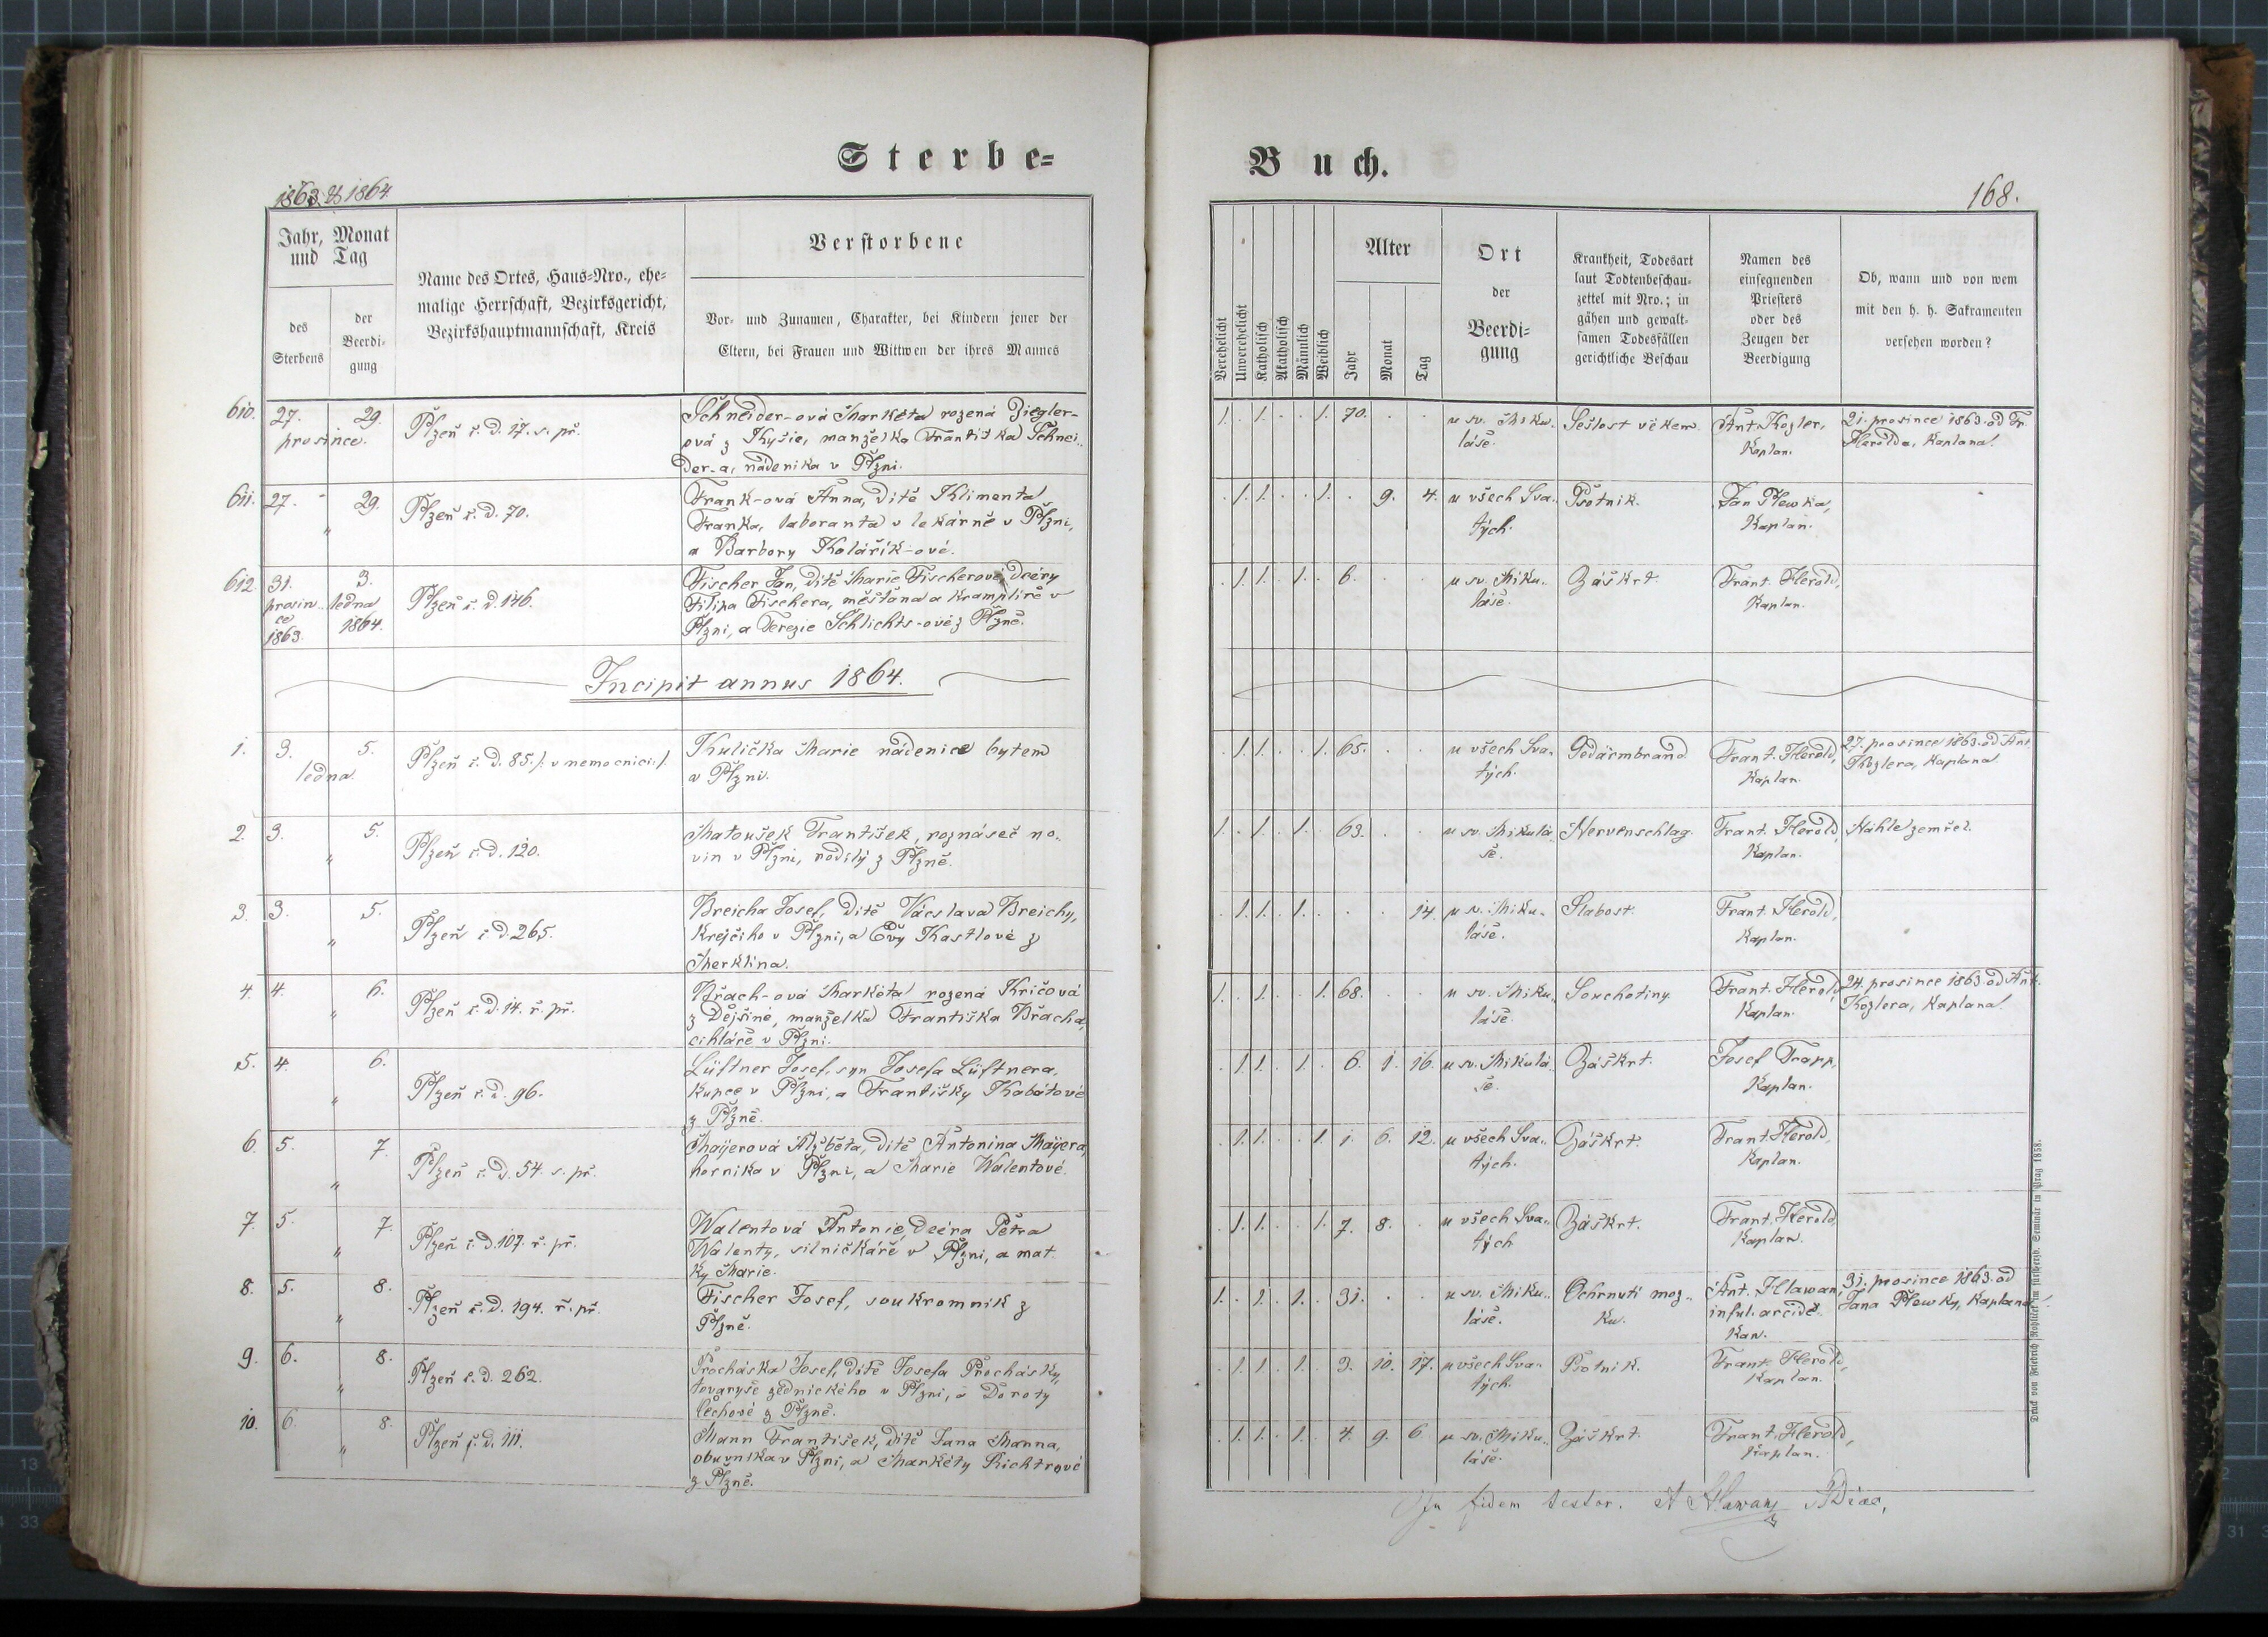 Sterbe=
1863 & 1864.
Jahr, Monat
und Tag
des
Sterbens
der
Beerdi-
gung
Name des Ortes, Haus=Nro., ehe-
malige Herrschaft, Bezirksgericht,
Bezirkshauptmannschaft, Kreis
Verstorbene
Vor- und Zunamen, Charakter, bei Kindern jener der
Eltern, bei Frauen und Wittwen der ihres Mannes
610. 27. 29.
prosince.
Plzeň č. D. 17. s. př.
Schneider-ová Markéta rozená Ziegler-
ová z Kyšic, manželka Františka Schnei-
der-a, nádeníka v Plzni.
611. 27. 29.
"
Plzeň č. D. 70.
Frank-ová Anna, dítě Klimenta
Franka, laboranta v lekárně v Plzni,
a Barbory Kolářík-ové.
612. 31. 3.
prosin- ledna
ce 1864.
1863.
Plzeň č. D. 146.
Fischer Jan, dítě Marie Fischerové, dcery
Filipa Fischera, měšťana a kramplíře v
Plzni, a Terezie Schlichts-ové z Plzně.
Incipit annus 1864.
1. 3. 5.
ledna.
Plzeň č. D. 85. /: v nemocnici :/.
Kulička Marie nádenice bytem
v Plzni.
2. 3. 5.
"
Plzeň č. D. 120.
Matoušek František, roznášeč no-
vin v Plzni, rodilý z Plzně.
3. 3. 5.
"
Plzeň č. D. 265.
Breicha Josef, dítě Václava Breichy,
krejčího v Plzni, a Evy Kastlové z
Merklína.
4. 4. 6.
"
Plzeň č. D. 14. ř. př.
Brach-ová Markéta rozená Kričová
z Dejšiné, manželka Františka Bracha,
cihláře v Plzni.
5. 4. 6.
"
Plzeň č. D. 96.
Lüftner Josef, syn Josefa Lüftnera,
kupce v Plzni, a Františky Kabátové
z Plzně.
6. 5. 7.
"
Plzeň č. D. 54. s. př.
Mayerová Alžběta, dítě Antonína Mayera,
horníka v Plzni, a Marie Walentové.
7. 5. 7.
"
Plzeň č. D. 107. ř. př.
Walentová Antonie, dcera Petra
Walenty, silničkáře v Plzni, a mat-
ky Marie.
8. 5. 8.
"
Plzeň č. D. 194. ř. př.
Fischer Josef, soukromník z
Plzně.
9. 6. 8.
"
Plzeň č. D. 262.
Procháska Josef, dítě Josefa Prochásky,
tovaryše zednického v Plzni, a Doroty
Čechové z Plzně.
10. 6. 8.
"
Plzeň č. D. 111.
Mann František, dítě Jana Manna,
obuvníka v Plzni, a Markéty Richtrové
z Plzně.
Buch.
168.
Verehelicht
Unverehelicht
Katholisch
Akatholisch
Männlich
Weiblich
Alter
Jahr
Monat
Tag
Ort
der
Beerdi-
gung
Krankheit, Todesart
laut Todtenbeschau-
zettel mit Nro.; in
gähen und gewalt-
samen Todesfällen
gerichtliche Beschau
Namen des
einsegnenden
Priesters
oder des
Zeugen der
Beerdigung
Ob, wann und von wem
mit den h. h. Sakramenten
versehen worden?
1. . 1. . . 1. 70. . . u sv. Miku- Sešlost věkem. Ant. Kozler, 21. prosince 1863. od Fr.
láše. Kaplan. Herolda, Kaplana.
. 1. 1. . . 1. . 9. 4. u všech Sva- Psotník. Jan Plewka,
tých. Kaplan.
. 1. 1. . 1. . 6. . . u sv. Miku- Záškrt. Frant. Herold,
láše. Kaplan.
. 1. 1. . . 1. 65. . . u všech Sva- Gedärmbrand. Frant. Herold, 27. prosince 1863. od Ant.
tých. Kaplan. Kozlera, Kaplana.
1. . 1. . 1. . 63. . . u sv. Mikulá- Nervenschlag. Frant. Herold, Náhle zemřel.
še. Kaplan.
. 1. 1. . 1. . . . 14. u sv. Miku- Slabost. Frant. Herold,
láše. Kaplan.
1. . 1. . . 1. 68. . . u sv. Miku- Souchotiny. Frant. Herold, 24. prosince 1863. od Ant.
láše. Kaplan. Kozlera, Kaplana.
. 1. 1. . 1. . 6. 1. 16. u sv. Mikulá- Záškrt. Josef Trapp,
še. Kaplan.
. 1. 1. . . 1. 1. 6. 12. u všech Sva- Záškrt. Frant. Herold,
tých. Kaplan.
. 1. 1. . . 1. 7. 8. . u všech Sva- Záškrt. Frant. Herold,
tých Kaplan.
1. . 1. . 1. . 31. . . u sv. Miku- Ochrnutí moz- Ant. Hlawan, 31. prosince 1863. od
láše. ku. inful. arcidě- Jana Plewky, Kaplana.
kan.
. 1. 1. . 1. . 3. 10. 17. u všech Sva- Psotník. Frant. Herold,
tých. Kaplan.
. 1. 1. . 1. . 4. 9. 6. u sv. Miku- Záškrt. Frant. Herold,
láše. Kaplan.
In fidem testor. A Hlawan
Druck von Friedrich Rohliček im fürsterzb. Seminär in Prag 1858.